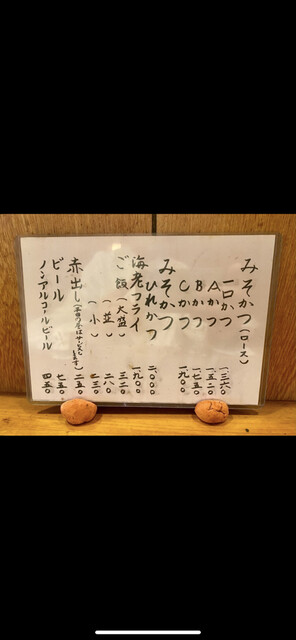 みそかつ(ロース)
一口かつ 一、三六〇
Aかつ 一、五二〇
Bかつ 一、七五〇
Cかつ 一、九〇〇
みそかつ
ひれかつ 二、〇〇〇
海老フライ 一、九〇〇
ご飯(大盛) 三二〇
(並) 二八〇
(小) 二三〇
赤出し 二五〇
ビール 七五〇
ノンアルコールビール 四五〇